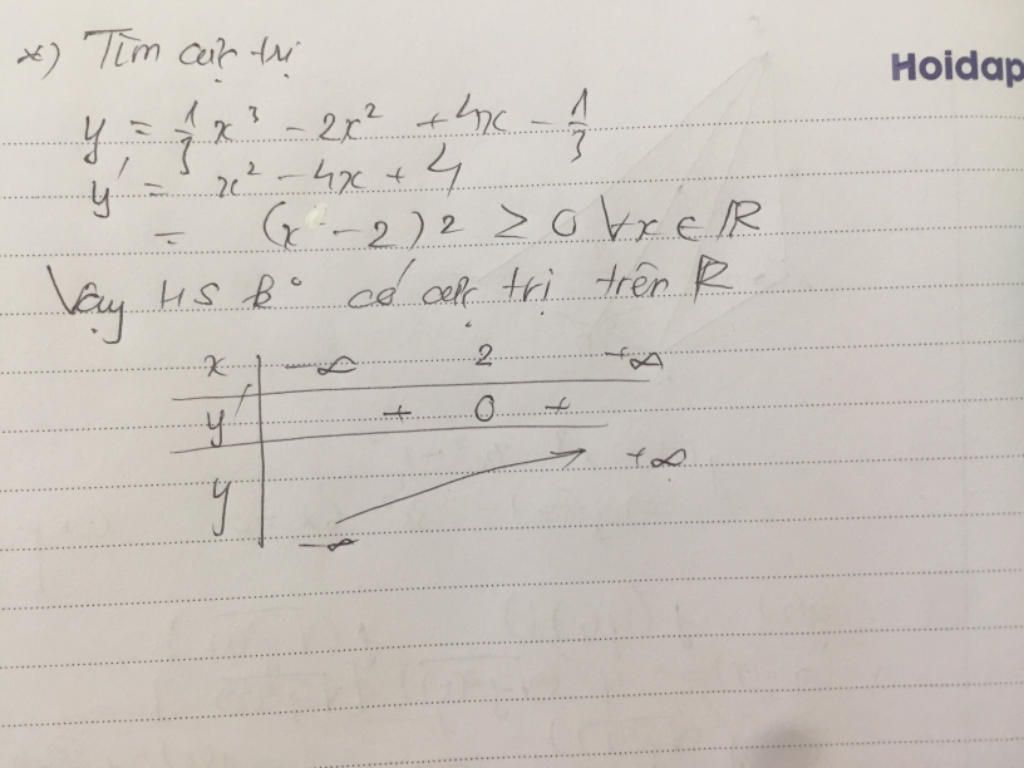 *) Tìm cực trị
Hoidap
y = 1/3 x³ - 2x² + 4x - 1/3
y' = x² - 4x + 4
= (x - 2)² ≥ 0 ∀x ∈ ℝ
Vậy HS k° có cực trị trên ℝ
x | -∞ 2 +∞
y' | + 0 +
y | -∞ ↗ +∞